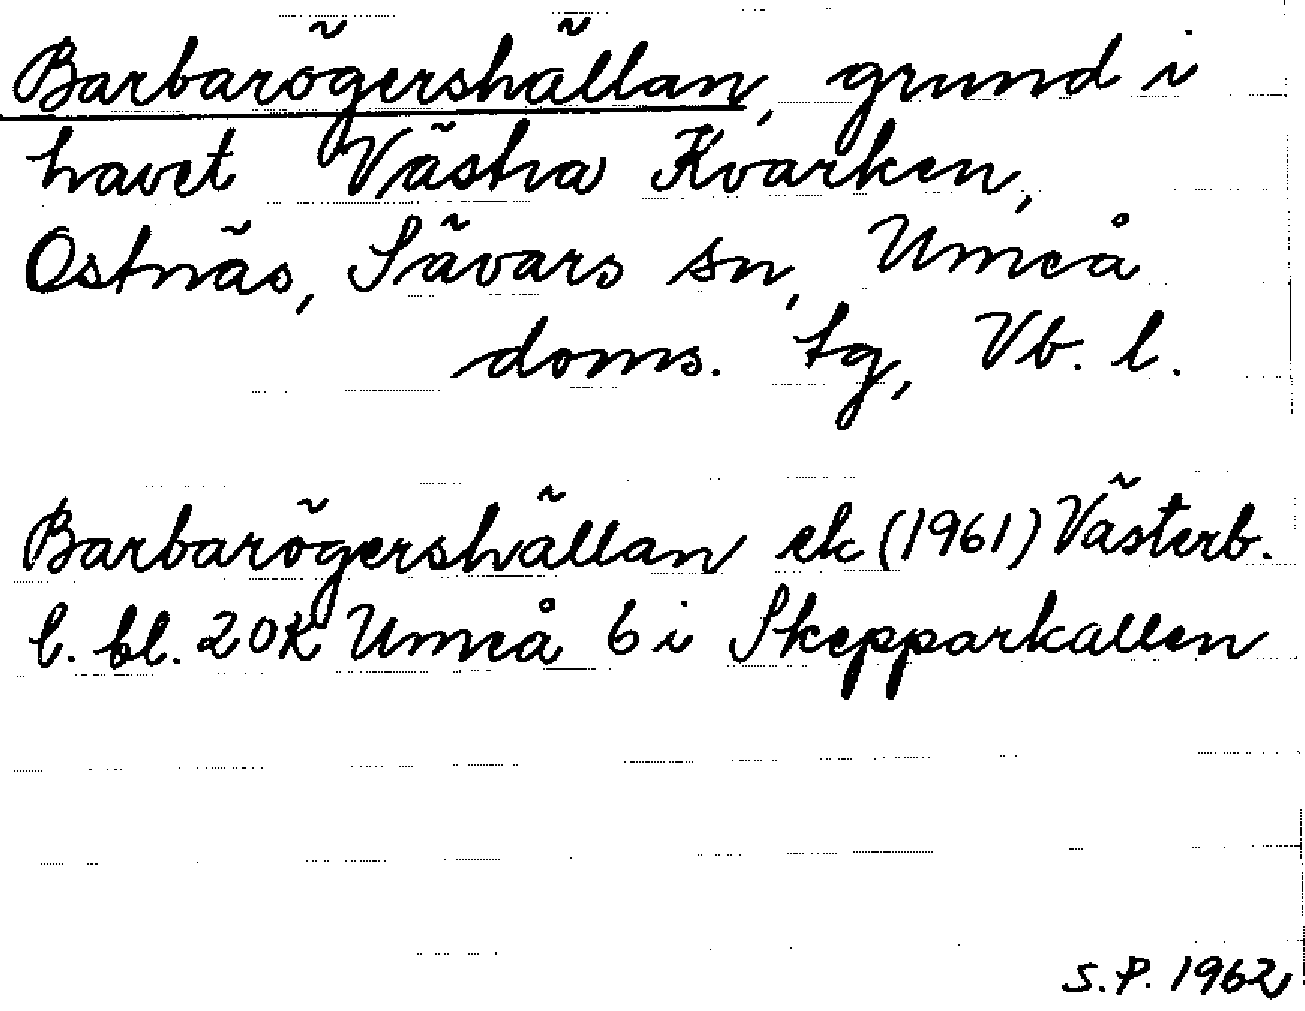 Barbarögershällan, grund i
havet Västra Kvarken,
Ostnäs, Sävars sn, Umeå
doms. tg, Vb. l.
Barbarögershällan ek (1961) Västerb.
l. bl. 20K Umeå 6 i Skepparkallen
S.P. 1962